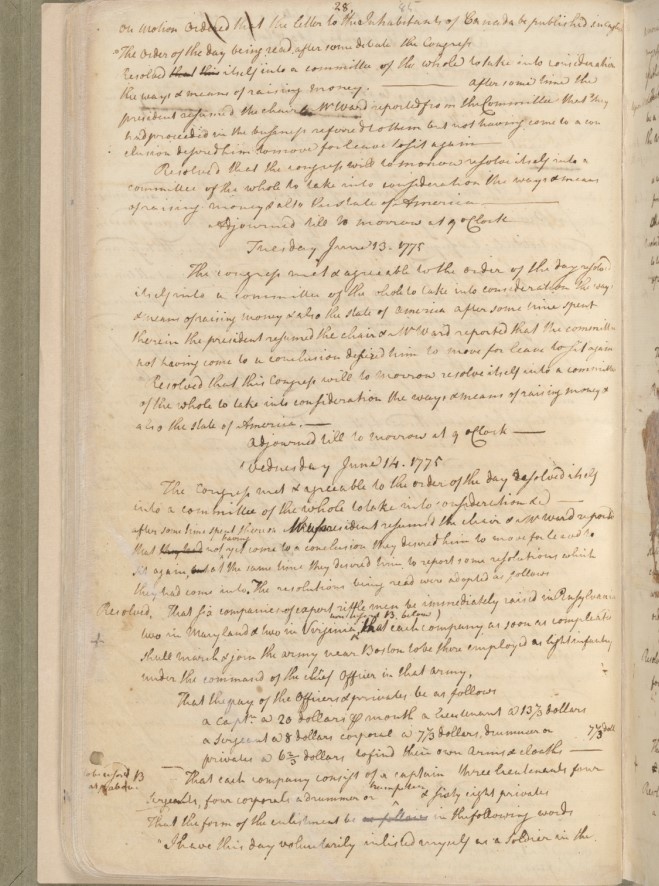 28.
On Motion Ordered that the letter to the Inhabitants of Canada be published
The Order of the day being read after some debate the Congress
Resolved that this itself into a committee of the whole to take into consideration
the ways & means of raising money. after some time the
president resumed the chair & Mr Ward reported from the Committee that they
had proceeded in the business referred to them but not having come to a con
clusion desired him to move for leave to sit again
Resolved that the congress will to morrow resolve itself into a
committee of the whole to take into consideration the ways & means
of raising money & also the state of America
Adjourned till to morrow at 9 oClock
Tuesday June 13. 1775
The congress met & agreeable to the order of the day resolv
itself into a committee of the whole to take into consideration the ways
& means of raising money & also the state of America after some time spent
therein the president resumed the chair & Mr Ward reported that the committee
not having come to a conclusion desired him to move for leave to sit again
Resolved that this Congress will to morrow resolve itself into a committee
of the whole to take into consideration the ways & means of raising money &
also the state of America.
Adjourned till to morrow at 9 oClock
Wednesday June 14. 1775
The Congress met & agreeable to the order of the day resolved itself
into a committee of the whole to take into consideration &c
after some time spent thereon the president resumed the chair & Mr Ward reported
that they had having not yet come to a conclusion they desired him to move for leave to
sit again, but at the same time they desired him to report some resolutions which
they had come into. The resolutions being read were adopted as follows
Resolved, That six companies of expert rifflemen be immediately raised in Pensylvania
two in Maryland & two in Virginia, that each company as soon as compleated
shall march & join the army near Boston to be there employed as light infantry
under the command of the chief Officer in that army.
That the pay of the Officers & privates be as follows
a Captn. a 20 dollars ⅌ month a lieutenant a 13⅓ dollars
a sergeant a 8 dollars corporal a 7⅓ dollars, drummer or 7⅓ doll
privates a 6⅔ dollars to find their own arms & cloaths
That each company consist of a captain three lieutenants four
sergeants, four corporals a drummer or trumpeter & sixty eight privates
That the form of the enlistment be as follows in the following words
"I have this day voluntarily inlisted myself as a soldier in the